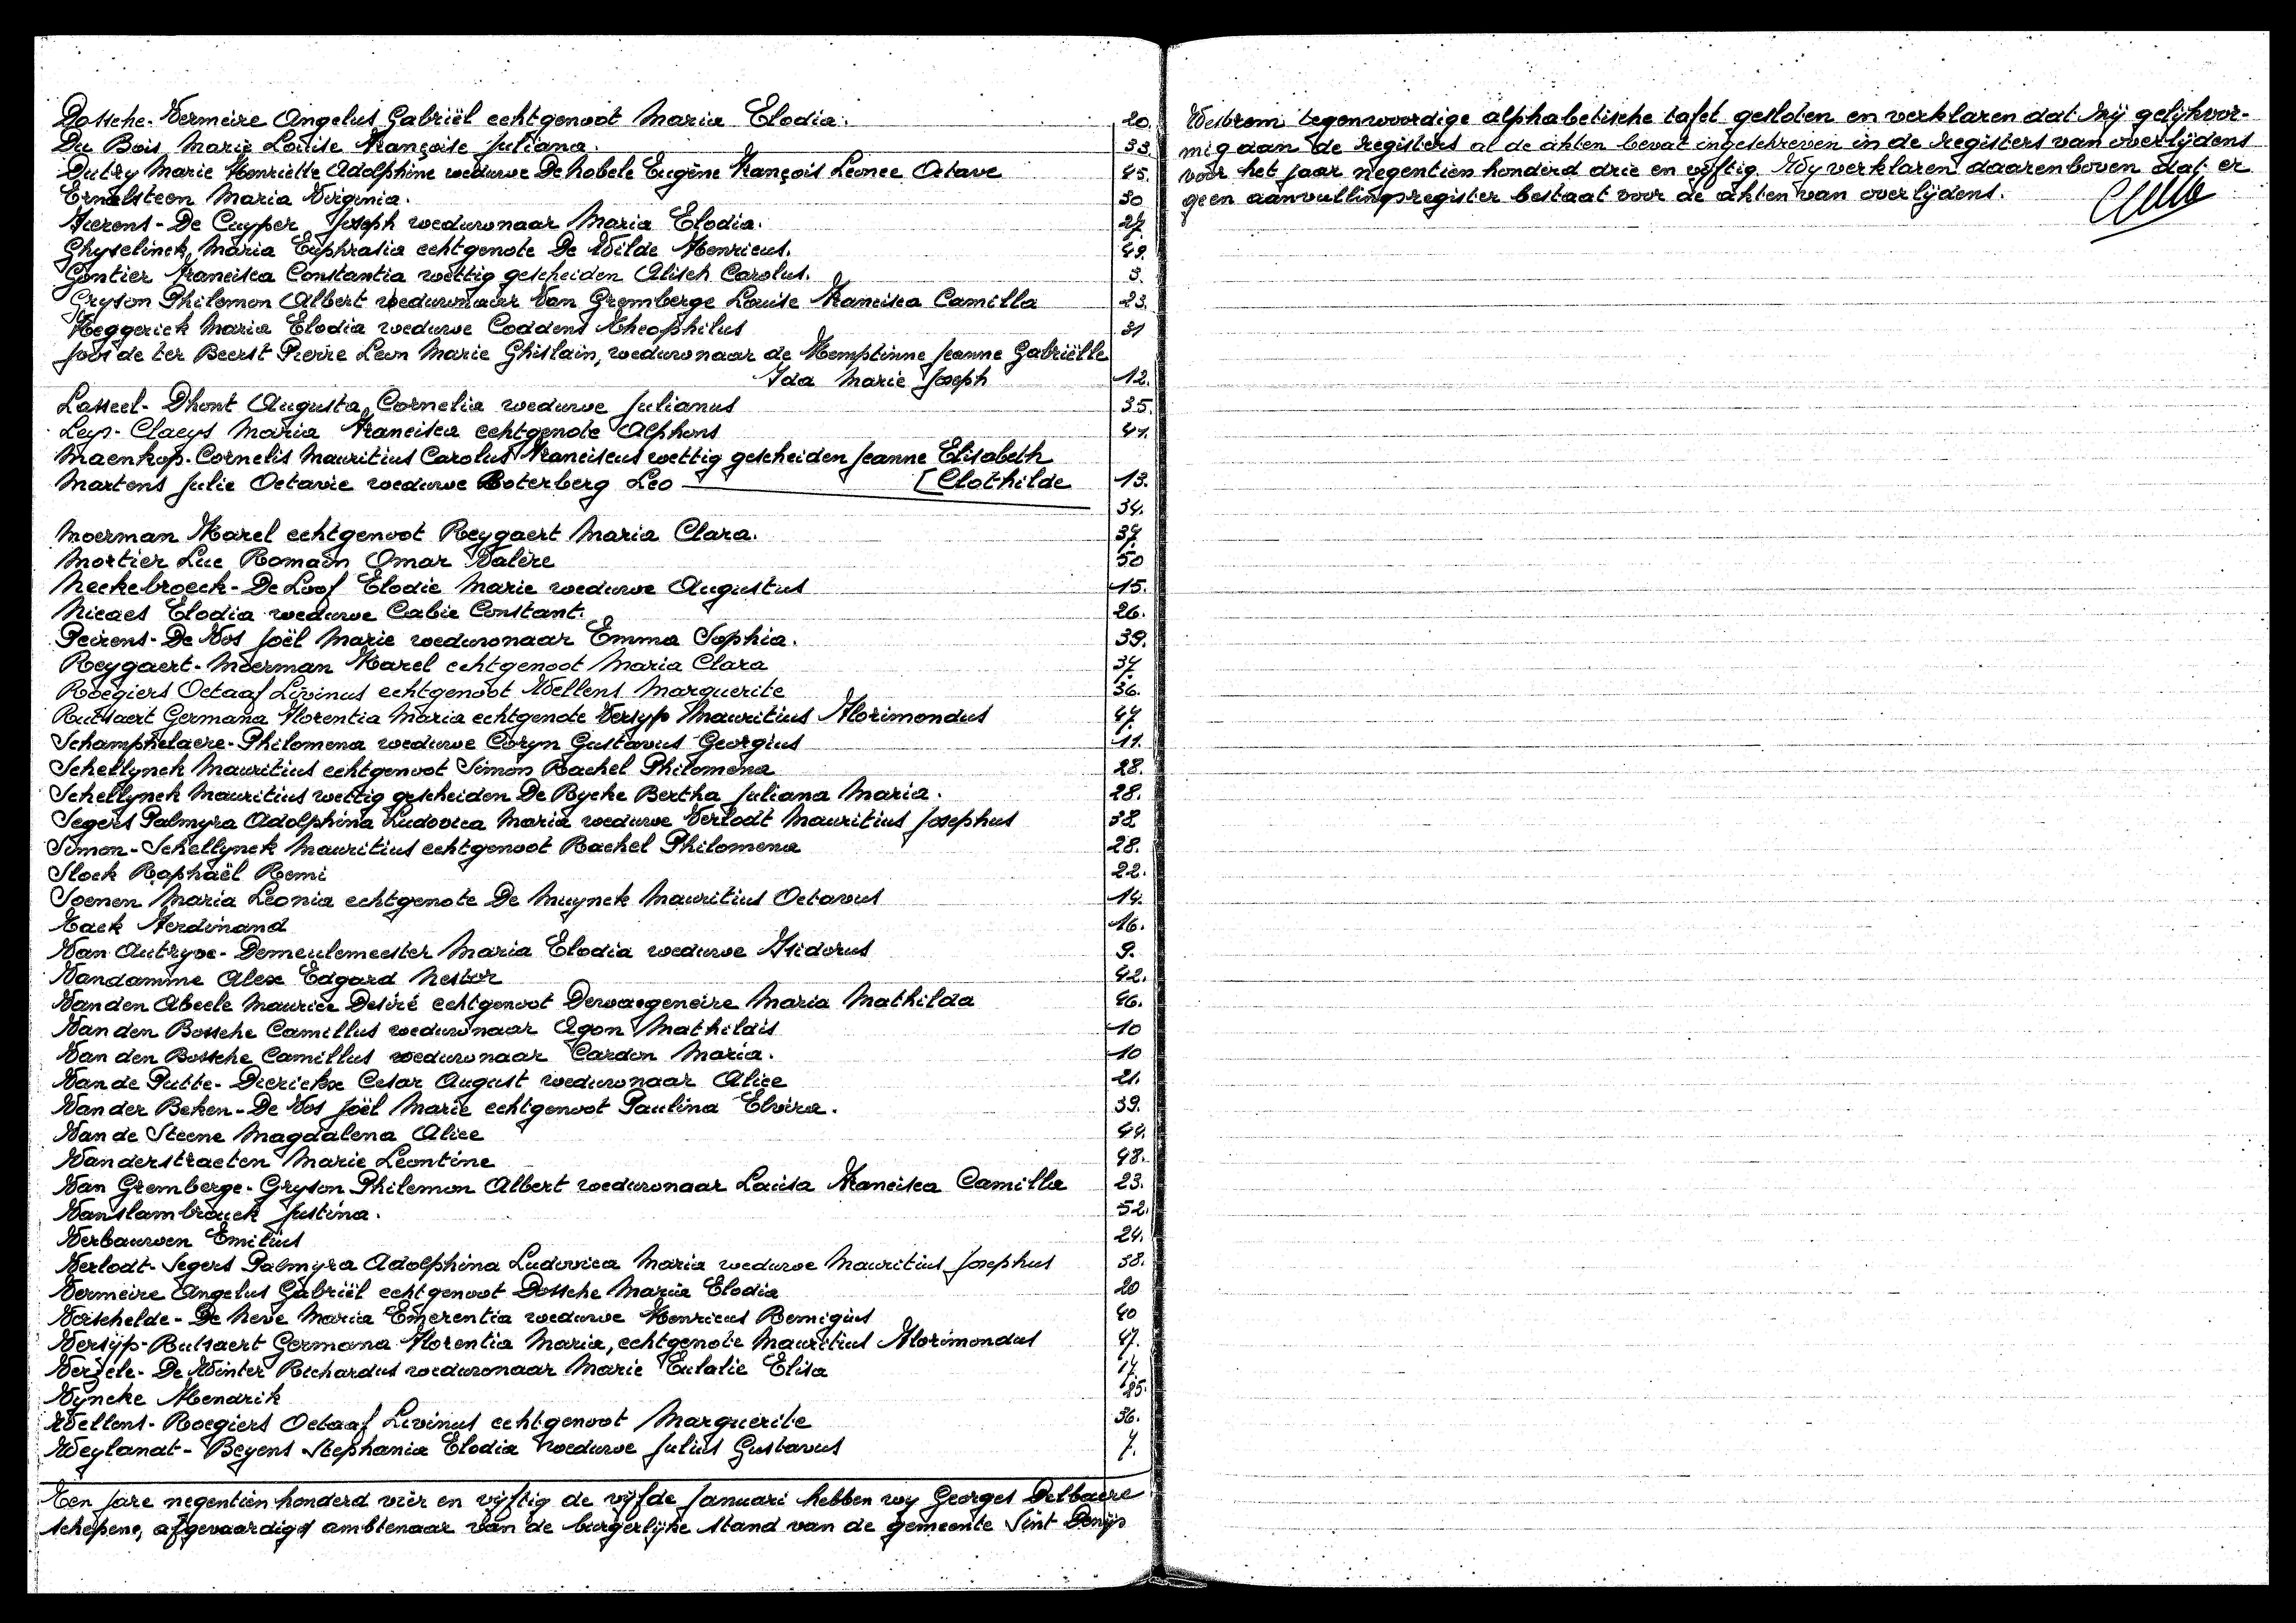 Dossche-Vermeire Angelus Gabriël echtgenoot Maria Elodia. 20.
Du Bois Marie Louise Françoise Juliana. 33.
Dutry Marie Henriette Adolphine weduwe De Nobele Eugène François Leonce Octave 45.
Ernalsteen Maria Virginia. 30
Fierens-De Cuyper Joseph weduwnaar Maria Elodia. 27.
Ghyselinck Maria Euphrasia echtgenote De Wilde Henricus. 49.
Gontier Francisca Constantia wettig gescheiden Alisch Carolus. 3.
Gryson Philemon Albert weduwnaar Van Gremberge Louise Francisca Camilla 23.
Heggerick Maria Elodia weduwe Coddens Theophilus 31
Joos de ter Beerst Pierre Leon Marie Ghislain, weduwnaar de Hemptinne Jeanne Gabriëlle
Ida Marie Joseph 12.
Lasseel-Dhont Augusta Cornelia weduwe Julianus 35.
Leys-Claeys Maria Francisca echtgenote Alphons 41.
Maenhop-Cornelis Mauritius Carolus Franciscus wettig gescheiden Jeanne Elisabeth
Martens Julie Octavie weduwe Boterberg Leo [Clothilde 13.
34.
Moerman Karel echtgenoot Reygaert Maria Clara. 37.
Mortier Luc Romain Omar Valère 50
Neckebroeck-De Loof Elodie Marie weduwe Augustus 15.
Nicaes Elodia weduwe Cabie Constant. 26.
Peirens-De Vos Joël Marie weduwnaar Emma Sophia. 39.
Reygaert-Moerman Karel echtgenoot Maria Clara 37.
Roegiers Octaaf Livinus echtgenoot Wellens Marguerite 36.
Rutsaert Germana Florentia Maria echtgenote Versyp Mauritius Florimondus 47.
Schamphelaere-Philomena weduwe Coryn Gustavus Georgius 11.
Schellynck Mauritius echtgenoot Simon Rachel Philomena 28.
Schellynck Mauritius wettig gescheiden De Rycke Bertha Juliana Maria. 28.
Segers Palmyra Adolphina Ludovica Maria weduwe Verlodt Mauritius Josephus 38
Simon-Schellynck Mauritius echtgenoot Rachel Philomena 28.
Slock Raphaël Remi 22.
Soenen Maria Leonia echtgenote De Muynck Mauritius Octavus 14.
Tack Ferdinand 16.
Van Autryve-Demeulemeester Maria Elodia weduwe Isidorus 9.
Vandamme Alex Edgard Nestor 42.
Van den Abeele Maurice Desiré echtgenoot Dewaegeneire Maria Mathilda 46.
Van den Bossche Camillus weduwnaar Agon Mathildis 10
Van den Bossche Camillus weduwnaar Cardon Maria. 10
Van de Putte-Dierickx Cesar August weduwnaar Alice 21.
Van der Beken-De Vos Joël Marie echtgenoot Paulina Elvira. 39.
Van de Steene Magdalena Alice 44.
Vanderstraeten Marie Leontine 48.
Van Gremberge-Gryson Philemon Albert weduwnaar Louisa Francisca Camilla 23.
Vanslambrouck Justina. 52.
Verbauwen Emilius 24.
Verlodt-Segers Palmyra Adolphina Ludovica Maria weduwe Mauritius Josephus 38.
Vermeire Angelus Gabriël echtgenoot Dossche Maria Elodia 20
Verschelde-De Neve Maria Emerentia weduwe Henricus Remigius 40
Versyp-Rutsaert Germana Florentia Maria, echtgenote Mauritius Florimondus 47.
Verzele-De Winter Richardus weduwnaar Marie Eulalie Elisa 17.
Vyncke Hendrik 25.
Wellens-Roegiers Octaaf Livinus echtgenoot Marguerite 36.
Weylandt-Beyens Stephania Elodia weduwe Julius Gustavus 7.
Ten Jare negentien honderd vier en vyftig de vyfde Januari hebben wy Georges Delbaere
schepene, afgevaardigd ambtenaar van de burgerlijke stand van de gemeente Sint Denijs
Westrem tegenwoordige alphabetische tafel gesloten en verklaren dat hij gelijkvor-
mig aan de registers al de akten bevat ingeschreven in de registers van overlijdens
voor het jaar negentien honderd drie en vyftig. Wy verklaren daarenboven dat er
geen aanvullingsregister bestaat voor de akten van overlijdens.